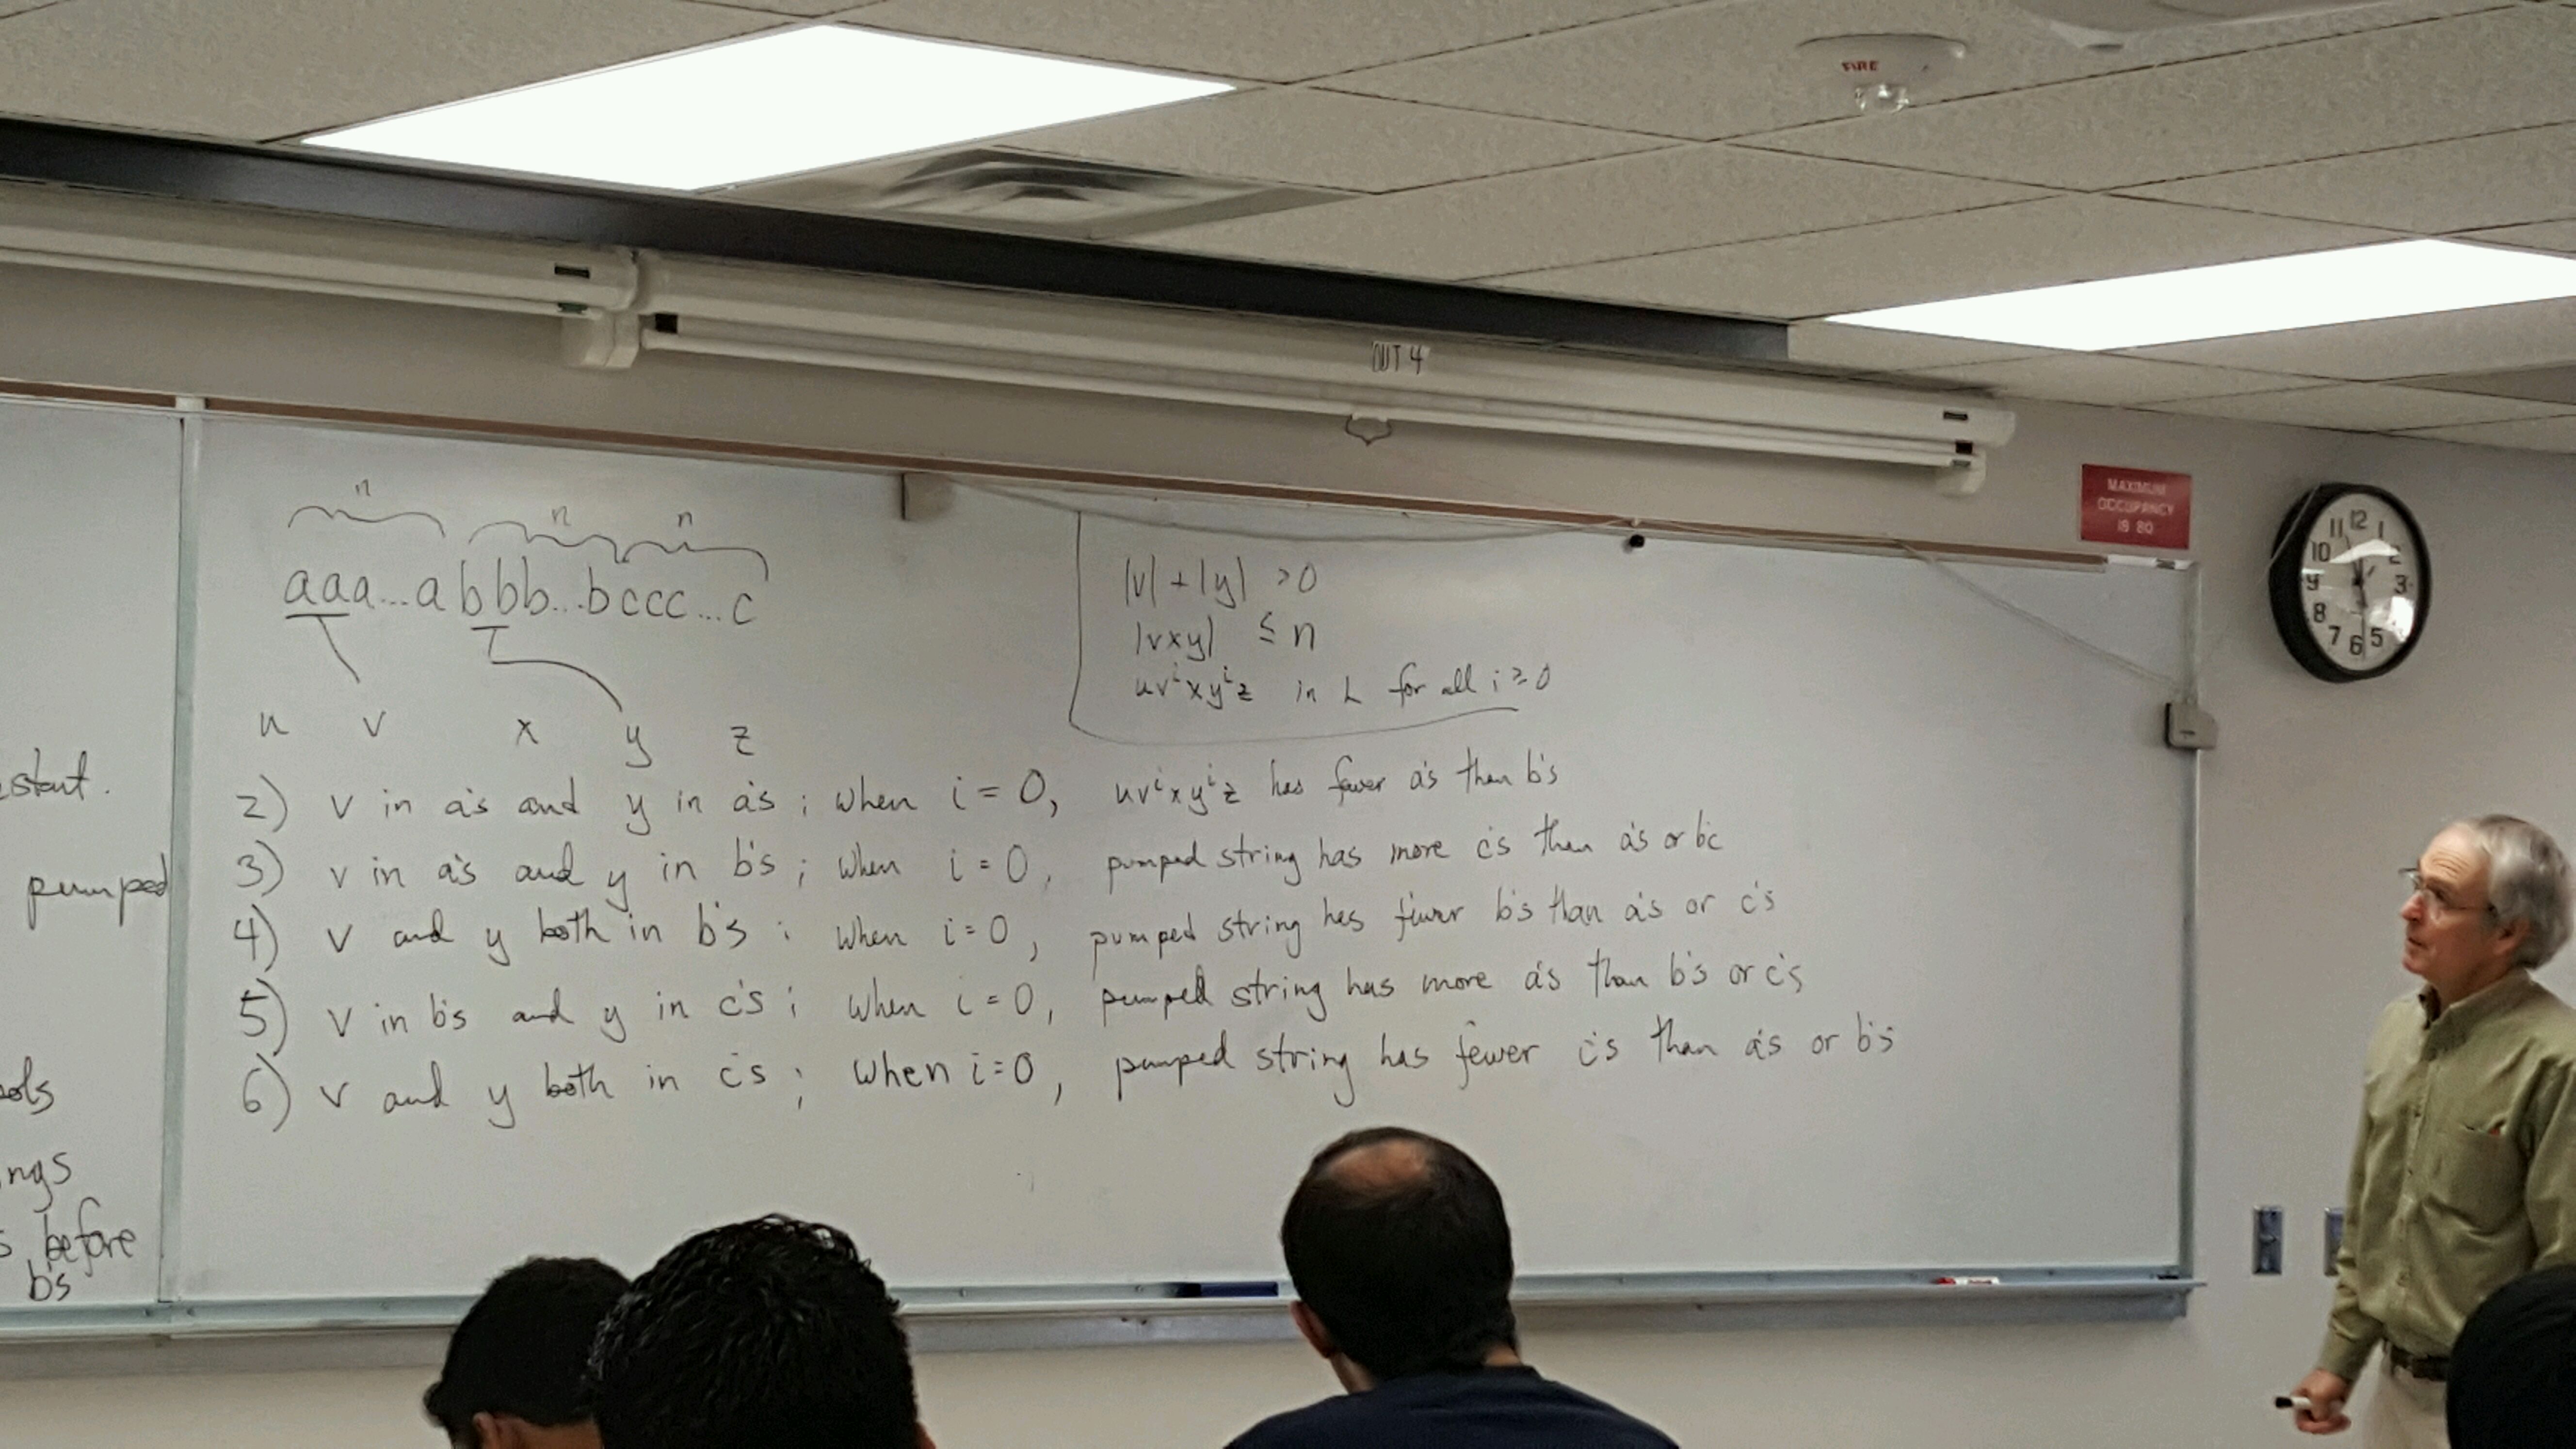 FIRE
OUT 4
MAXIMUM
OCCUPANCY
IS 80
11 12 1
10 2
9 3
8
7 6 5
n n n
aaa...abbb...bccc...c
u v x y z
|v| + |y| > 0
|vxy| ≤ n
uvⁱxyⁱz in L for all i ≥ 0
2) v in a's and y in a's ; when i = 0, uvⁱxyⁱz has fewer a's than b's
3) v in a's and y in b's ; when i = 0, pumped string has more c's than a's or b's
4) v and y both in b's ; when i = 0, pumped string has fewer b's than a's or c's
5) v in b's and y in c's ; when i = 0, pumped string has more a's than b's or c's
6) v and y both in c's ; when i = 0, pumped string has fewer c's than a's or b's
pumped
before
b's